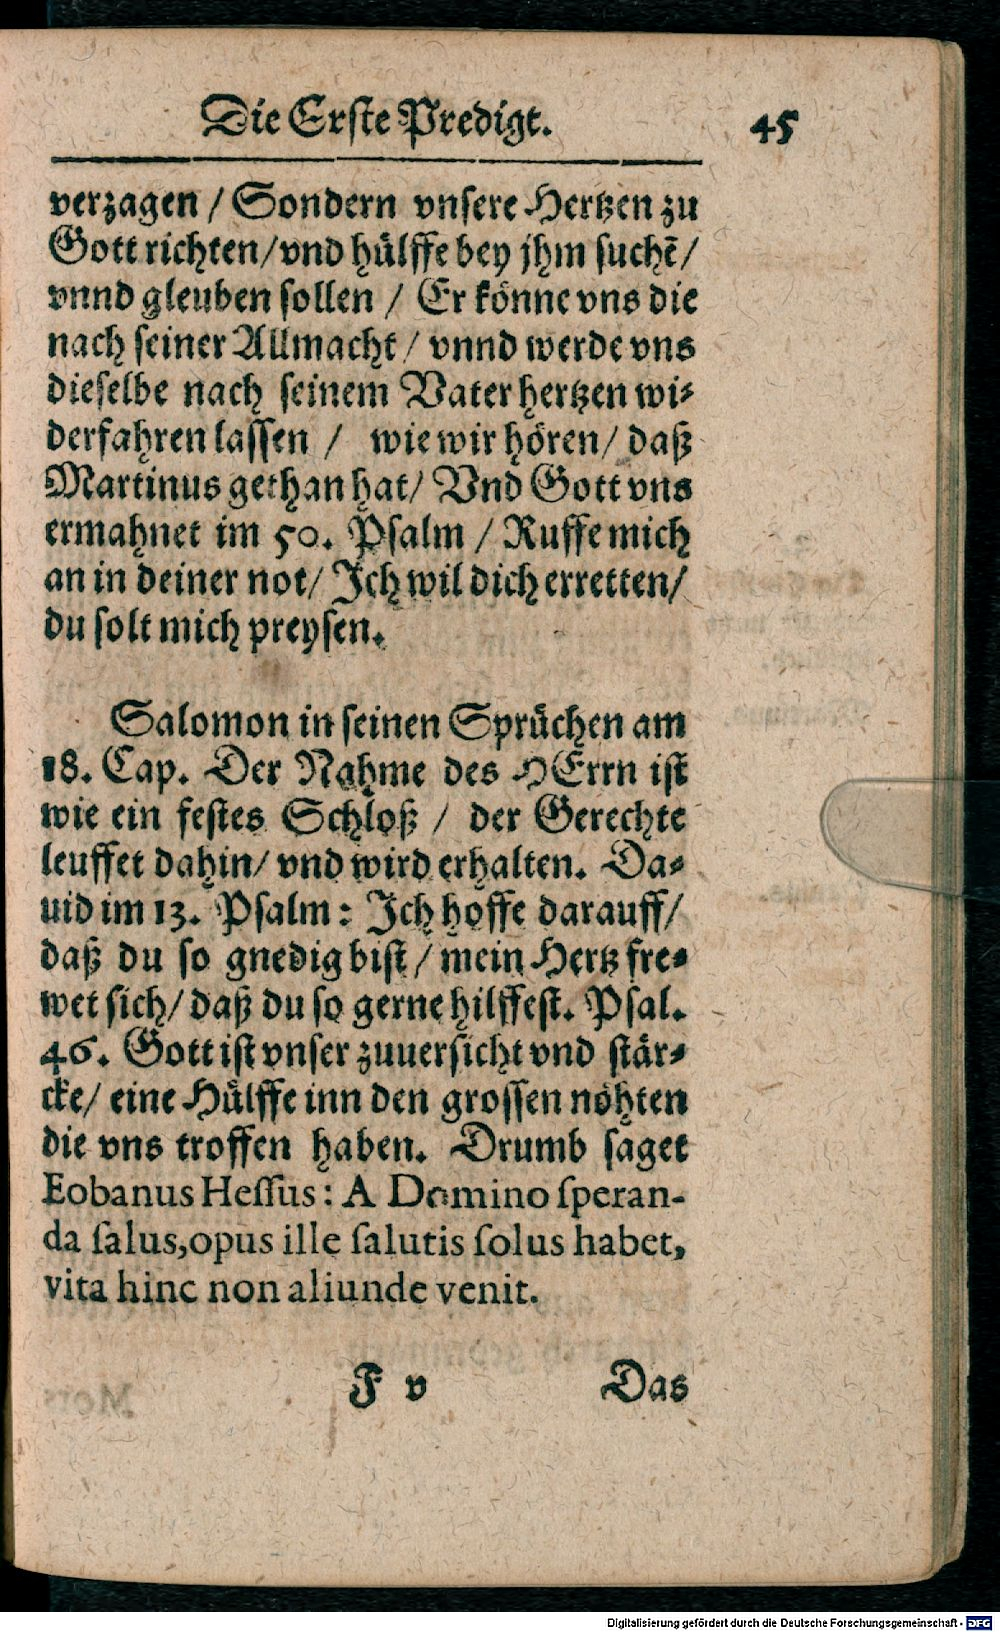 Die Erste Predigt. 45
verzagen / Sondern vnsere Hertzen zu
Gott richten/vnd hülffe bey jhm suchē/
vnnd gleuben sollen / Er könne vns die
nach seiner Allmacht / vnnd werde vns
dieselbe nach seinem Vater hertzen wi-
derfahren lassen / wie wir hören/ daß
Martinus gethan hat/ Vnd Gott vns
ermahnet im 50. Psalm / Ruffe mich
an in deiner not/ Ich wil dich erretten/
du solt mich preysen.
Salomon in seinen Sprüchen am
18. Cap. Der Nahme des HErrn ist
wie ein festes Schloß / der Gerechte
leuffet dahin/ vnd wird erhalten. Da-
uid im 13. Psalm: Ich hoffe darauff/
daß du so gnedig bist / mein Hertz fre-
wet sich/ daß du so gerne hilffest. Psal.
46. Gott ist vnser zuuersicht vnd stär-
cke/ eine Hülffe inn den grossen nöhten
die vns troffen haben. Drumb saget
Eobanus Heſſus: A Domino ſperan-
da ſalus,opus ille ſalutis ſolus habet,
vita hinc non aliunde venit.
F v Das
Digitalisierung gefördert durch die Deutsche Forschungsgemeinschaft - DFG